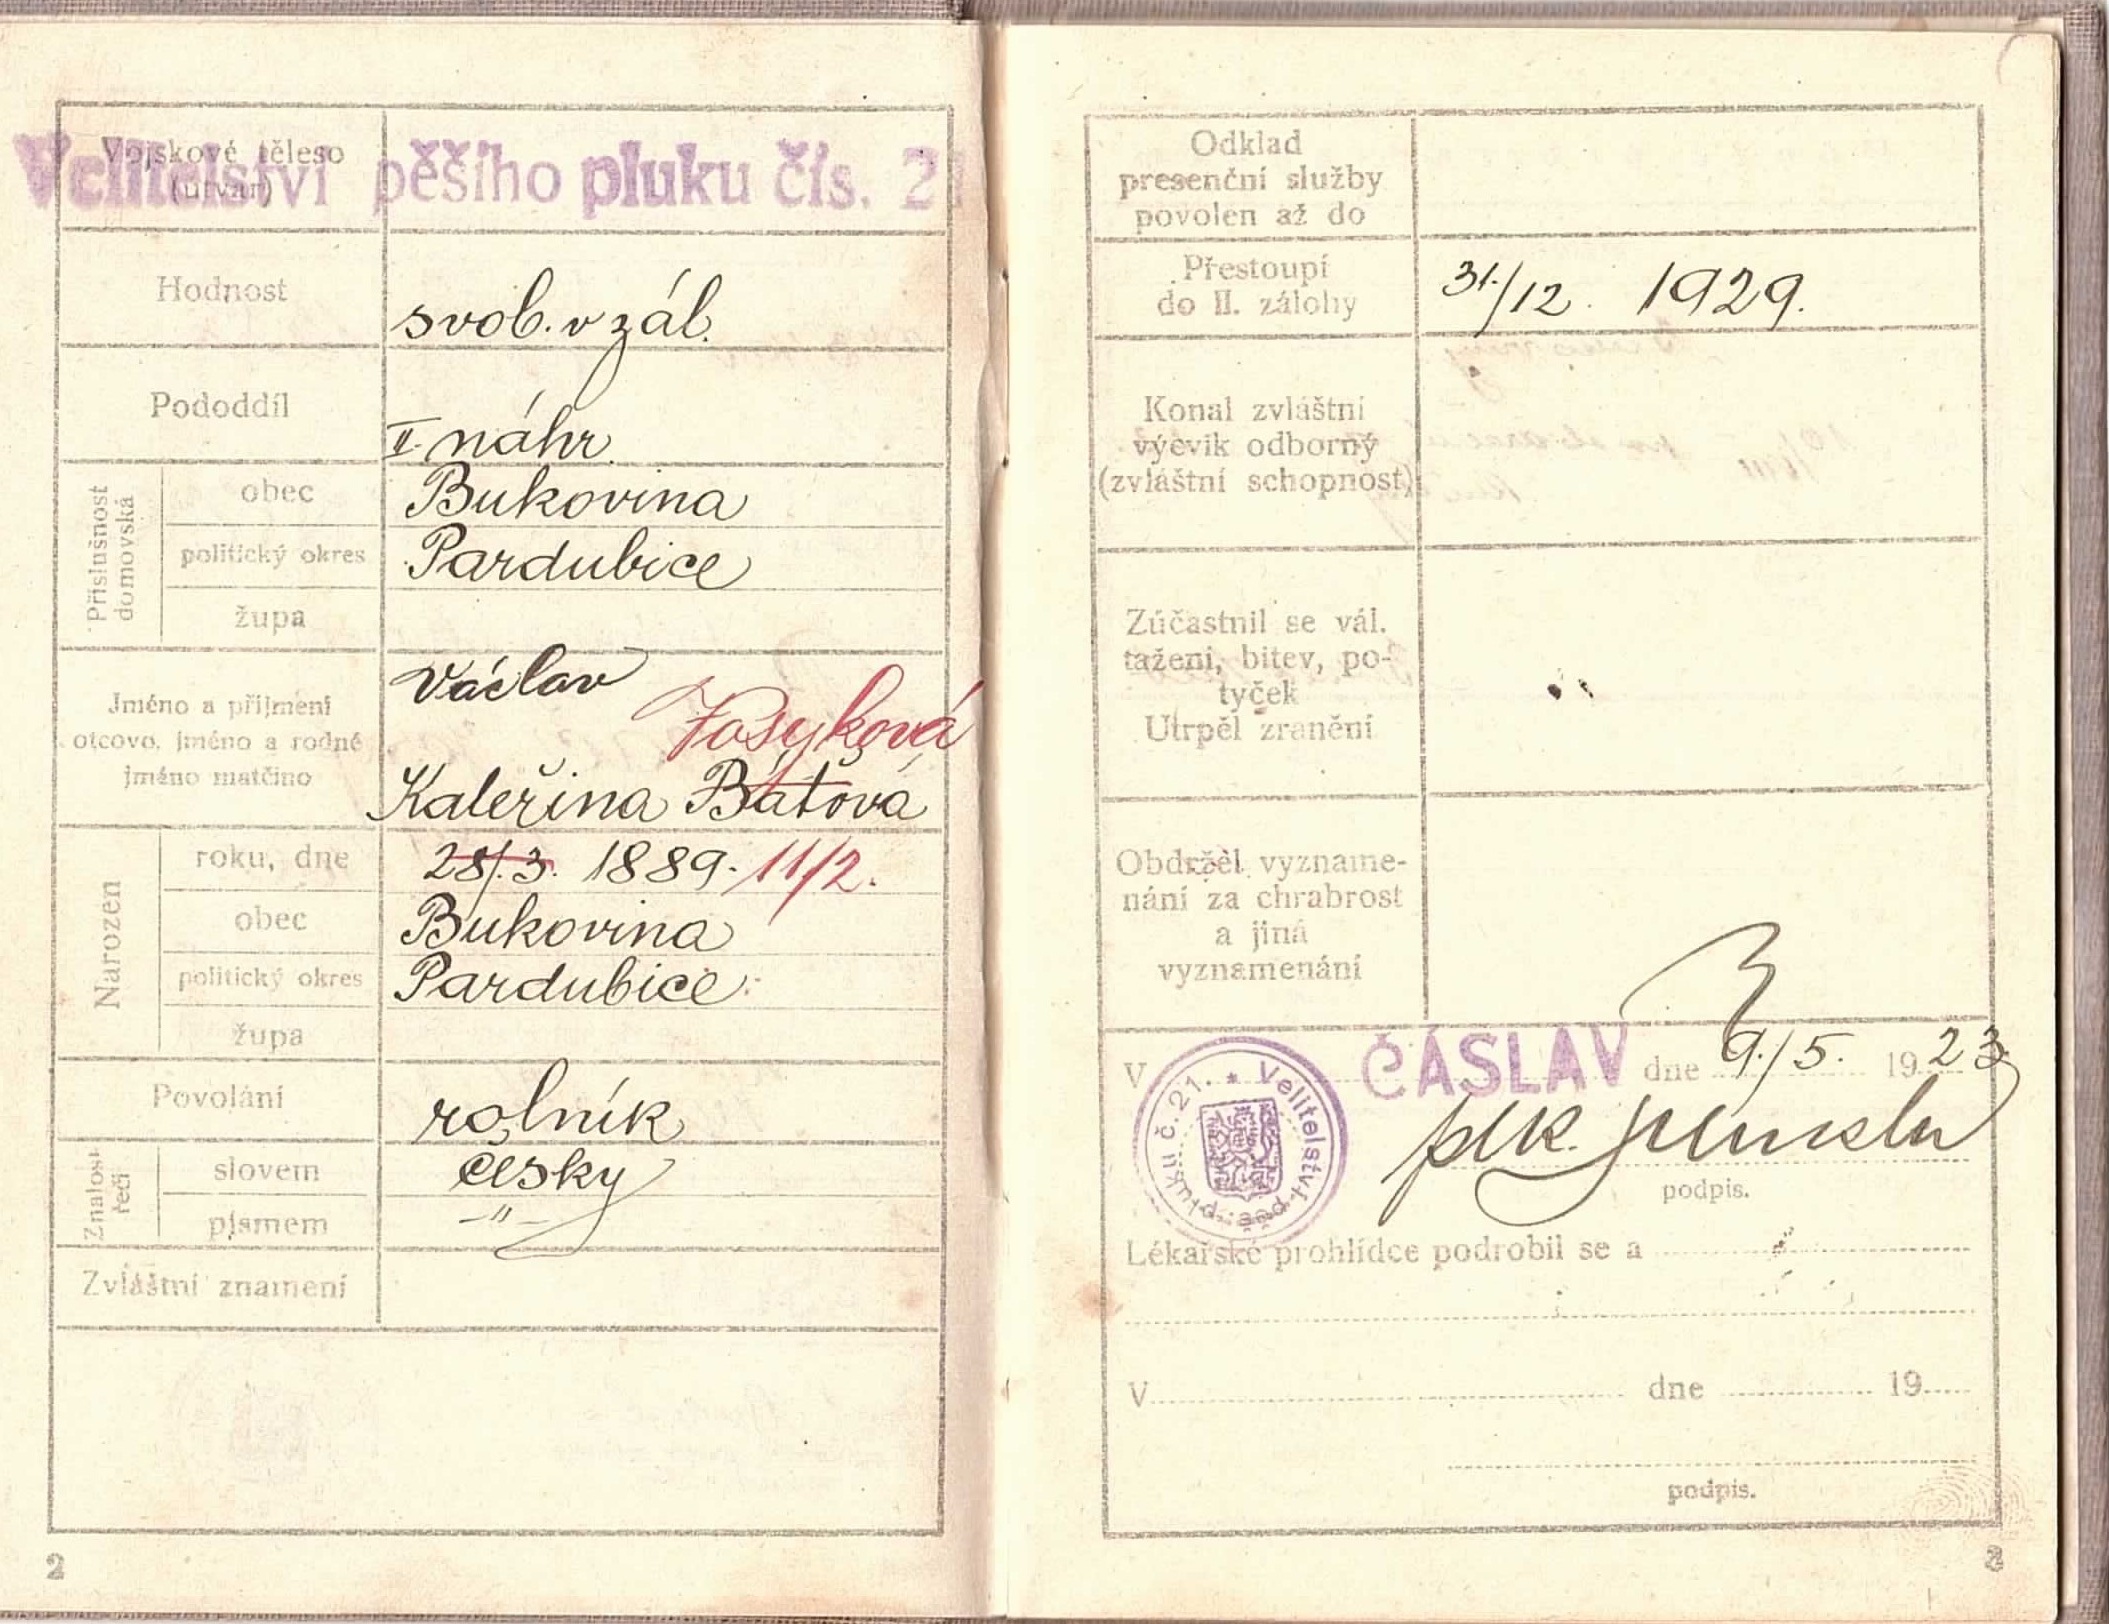 Vojskové těleso
(útvar)
Velitelství pěšího pluku čís. 21
Hodnost
svob. v zál.
Pododdíl
II. náhr.
Příslušnost
domovská
obec
Bukovina
politický okres
Pardubice
župa
Jméno a příjmení
otcovo, jméno a rodné
jméno matčino
Václav
Kateřina Báťová
Narozen
roku, dne
28/.3. 1889. 11/2.
obec
Bukovina
politický okres
Pardubice
župa
Povolání
rolník
Znalost
řečí
slovem
česky
písmem
-"-
Zvláštní znamení
2
Odklad
presenční služby
povolen až do
Přestoupí
do II. zálohy
31./12. 1929.
Konal zvláštní
výcvik odborný
(zvláštní schopnost)
Zúčastnil se vál.
tažení, bitev, po-
tyček
Utrpěl zranění
Obdržel vyzname-
nání za chrabrost
a jiná
vyznamenání
V ČÁSLAV dne 9./5. 1923
Velitelství pěš. pluku č. 21. *
plk.
podpis.
Lékařské prohlídce podrobil se a
V dne 19
podpis.
3